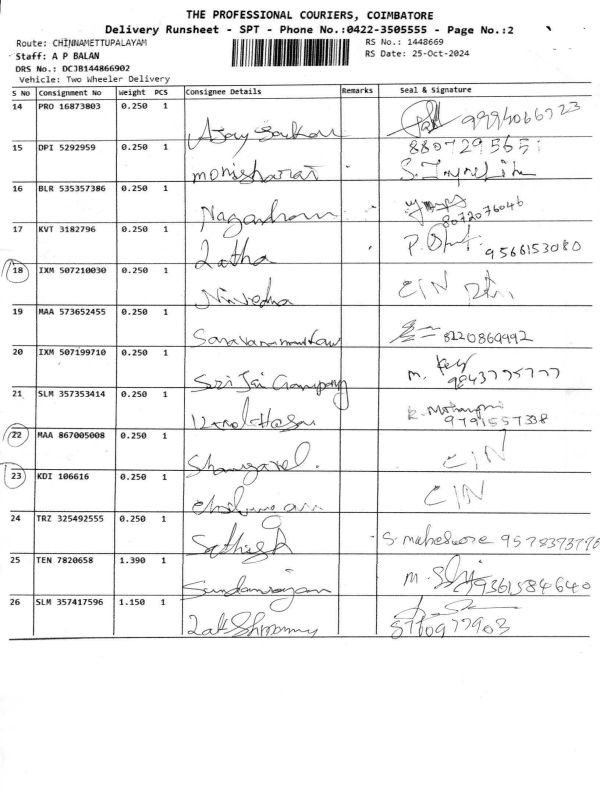 THE PROFESSIONAL COURIERS, COIMBATORE
Delivery Runsheet - SPT - Phone No.:0422-3505555 - Page No.:2
Route: CHINNAMETTUPALAYAM RS No.: 1448669
Staff: A P BALAN RS Date: 25-Oct-2024
DRS No.: DCJB144866902
Vehicle: Two Wheeler Delivery
S No Consignment No Weight PCS Consignee Details Remarks Seal & Signature
14 PRO 16873803 0.250 1
Ajay 9994066723
15 DPI 5292959 0.250 1 8807295651
16 BLR 535357386 0.250 1
8072076046
17 KVT 3182796 0.250 1
Latha 9566153080
18 IXM 507210030 0.250 1
Nivedha CIN
19 MAA 573652455 0.250 1
8220869992
20 IXM 507199710 0.250 1
Sri Jai M.
9843775777
21 SLM 357353414 0.250 1
9791557338
22 MAA 867005008 0.250 1
CIN
23 KDI 106616 0.250 1
CIN
24 TRZ 325492555 0.250 1
Sathish S.
25 TEN 7820658 1.390 1
Sundarrajan M. 9361584640
26 SLM 357417596 1.150 1
8710977903